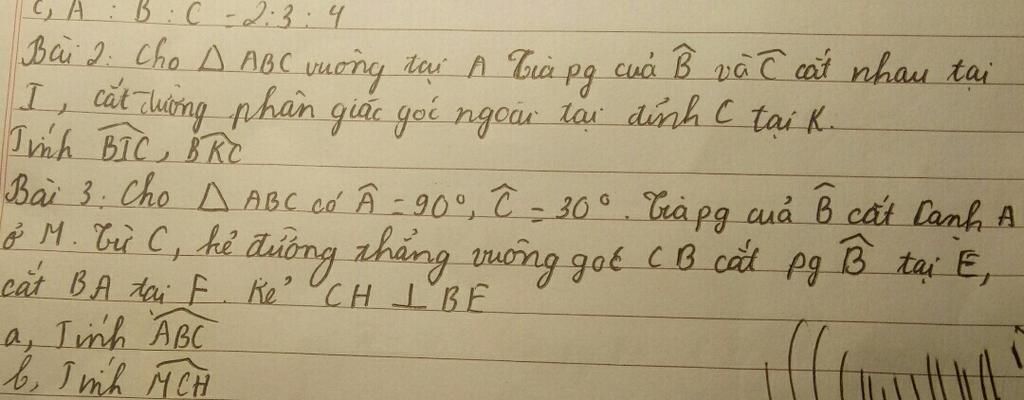 c, A : B : C = 2:3:4
Bài 2: Cho △ ABC vuông tại A Tia pg cuả B̂ và Ĉ cắt nhau tại
I, cắt đường phân giác góc ngoài tại đỉnh C tại K.
Tính \widehat{BIC}, \widehat{BKC}
Bài 3: Cho △ ABC có Â = 90°, Ĉ = 30°. Tia pg cuả B̂ cắt cạnh A
ở M. Từ C, kẻ đường thẳng vuông góc CB cắt pg B̂ tại E,
cắt BA tại F. Kẻ CH ⊥ BE
a, Tính \widehat{ABC}
b, Tính \widehat{MCH}